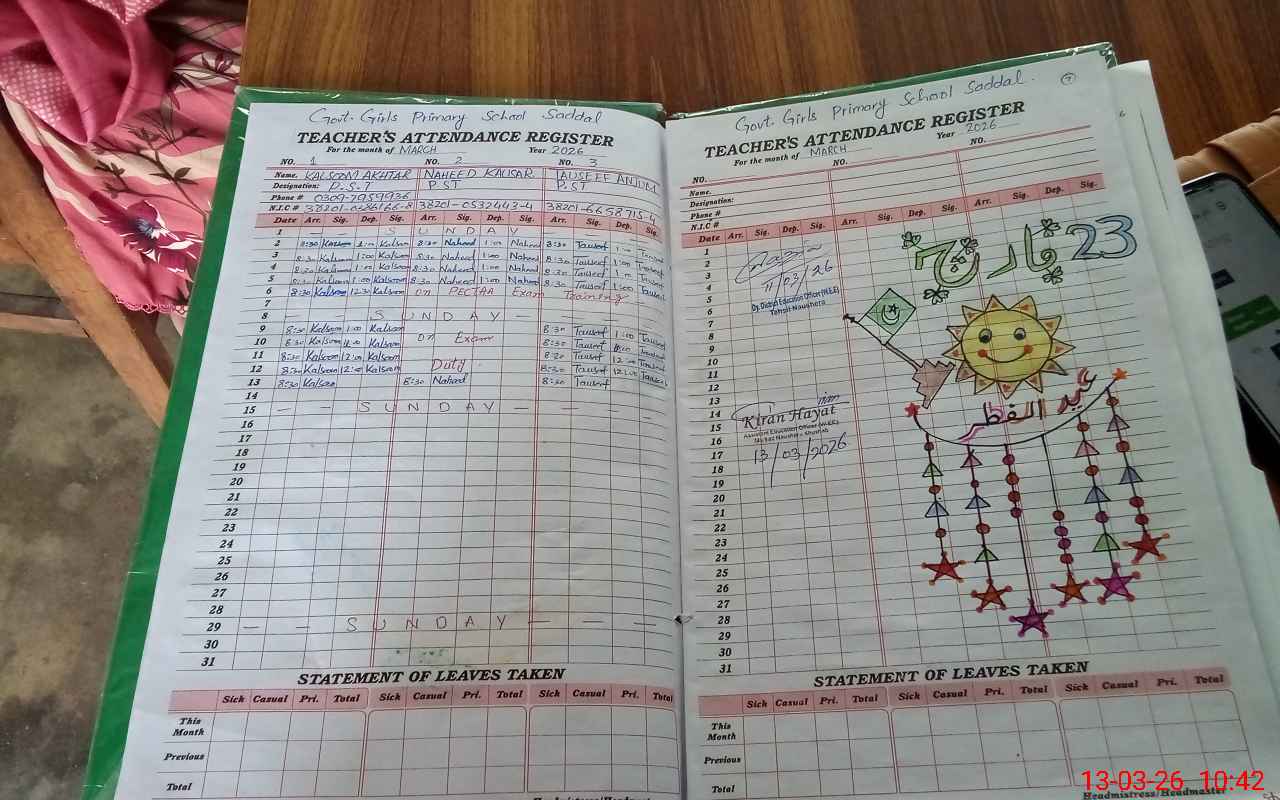 Govt. Girls Primary School Saddal
TEACHER'S ATTENDANCE REGISTER
For the month of MARCH Year 2026
NO. 1 NO. 2 NO. 3
Name. KALSOOM AKHTAR NAHEED KAUSAR TAUSEEF ANJUM
Designation: P.S.T P.ST P.ST
Phone # 0309-7959936
N.I.C # 38201-0532443-4 38201-6658715-4
Date Arr. Sig. Dep. Sig. Arr. Sig. Dep. Sig. Arr. Sig. Dep. Sig.
1 — — S U N D A Y — — — —
2 8:30 Kalsoom 1:00 Kalsoom 8:30 Naheed 1:00 Naheed 8:30 Tauseef 1:00 Tauseef
3 8:30 Kalsoom 1:00 Kalsoom 8:30 Naheed 1:00 Naheed 8:30 Tauseef 1:00 Tauseef
4 8:30 Kalsoom 1:00 Kalsoom 8:30 Naheed 1:00 Naheed 8:30 Tauseef 1:00 Tauseef
5 8:30 Kalsoom 1:00 Kalsoom 8:30 Naheed 1:00 Naheed 8:30 Tauseef 1:00 Tauseef
6 8:30 Kalsoom 12:30 Kalsoom On PECTAA Exam Training
7
8 — S U N D A Y — — — —
9 8:30 Kalsoom 1:00 Kalsoom 8:30 Tauseef 1:00 Tauseef
10 8:30 Kalsoom Kalsoom On Exam 8:30 Tauseef Tauseef
11 8:30 Kalsoom 12:00 Kalsoom 8:30 Tauseef 12:00 Tauseef
12 8:30 Kalsoom 12:00 Kalsoom Duty 8:30 Tauseef 12:00 Tauseef
13 8:30 Kalsoom 8:30 Naheed 8:30 Tauseef
14
15 — — S U N D A Y — — — —
16
17
18
19
20
21
22
23
24
25
26
27
28
29 — — S U N D A Y — — — —
30
31
STATEMENT OF LEAVES TAKEN
Sick Casual Pri. Total Sick Casual Pri. Total Sick Casual Pri. Total
This Month
Previous
Total
Govt. Girls Primary School Saddal. 7
TEACHER'S ATTENDANCE REGISTER
For the month of MARCH Year 2026
NO. NO. NO.
Name.
Designation:
Phone #
N.I.C #
Date Arr. Sig. Dep. Sig. Arr. Sig. Dep. Sig. Arr. Sig. Dep. Sig.
1
2
3
4
5
6
7
8
9
10
11
12
13
14
15
16
17
18
19
20
21
22
23
24
25
26
27
28
29
30
31
11/03/26
Dy. District Education Officer (W.E.E)
Tehsil Naushera
23 مارچ
عید الفطر
Kiran Hayat
Assistant Education Officer (W.E.E)
13/03/2026
STATEMENT OF LEAVES TAKEN
Sick Casual Pri. Total Sick Casual Pri. Total Sick Casual Pri. Total
This Month
Previous
Total
Headmistress/Headmaster
13-03-26 10:42